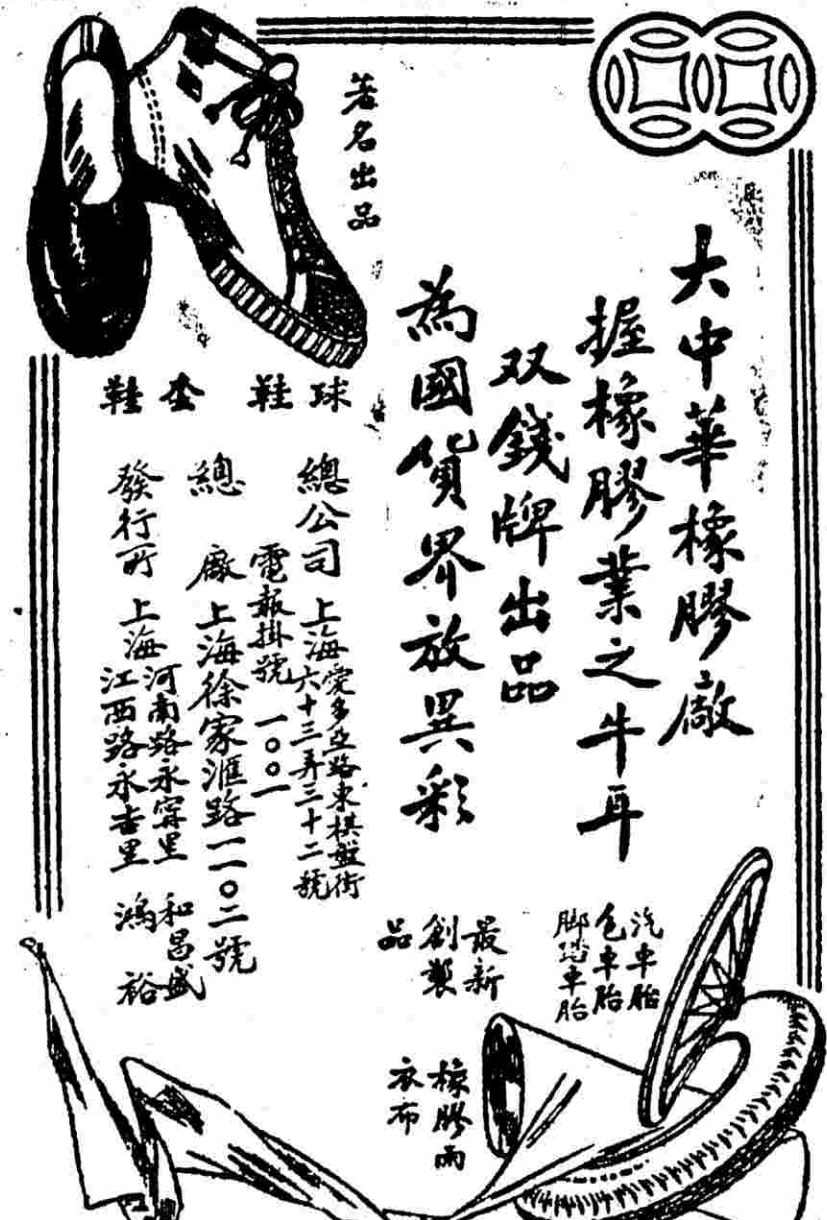 大中華橡膠廠
握橡膠業之牛耳
双錢牌出品
為國貨界放異彩
著名出品
球鞋
套鞋
總公司 上海愛多亞路東棋盤街
六十三弄三十二號
電報掛號 一〇〇一
總廠 上海徐家滙路一一〇二號
發行所 上海河南路永甯里 和昌盛
江西路永吉里 鴻裕
汽車胎
包車胎
脚踏車胎
最新
創製
品
橡膠雨
衣布